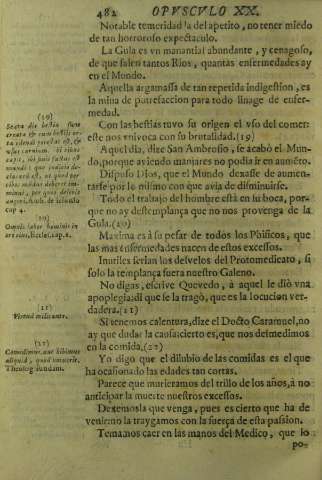 482 OPVSCVLO XX.
Notable temeridad la del apetito, no tener miedo
de tan horroroso expectaculo.
La Gula es vn manantial abundante, y cenagoso,
de que salen tantos Rios, quantas enfermedades ay
en el Mundo.
Aquella argamassa de tan repetida indigestion, es
la mina de putrefaccion para todo linage de enfer-
medad.
Con las bestias tuvo su origen el vso del comer:
este nos envioca con su brutalidad. (19)
Aquel dia, dize San Ambrosio, se acabò el Mun-
do, porque aviendo manjares no podia ir en aumẽto.
Dispuso Dios, que el Mundo dexasse de aumen-
tarse por lo mismo con que avia de disminuirse.
Todo el trabajo del hombre está en su boca, por-
que no ay destemplança que no nos provenga de la
Gula. (20)
Maxima es à su pesar de todos los Phisicos, que
las mas enfermedades nacen de estos excessos.
Inutiles serian los desvelos del Protomedicato, si
solo la templança fuera nuestro Galeno.
No digas, escrive Quevedo, à aquel le diò vna
apoplegia: di que se la tragò, que es la locucion ver-
dadera. (21)
Si tenemos calentura, dize el Docto Caramuel, no
ay que dudar la causa: cierto es, que nos desmedimos
en la comida. (22)
Yo digo que el dilubio de las comidas es el que
ha ocasionado las edades tan cortas.
Parece que murieramos del trillo de los años, à no
anticipar la muerte nuestros excessos.
Dexemosla que venga, pues es cierto que ha de
venir: no la traygamos con la fuerça de esta passion.
Temamos caer en las manos del Medico, que lo
po-
(19)
Sexta die bestiæ sunt
creatæ & cum bestijs or-
ta edendi potestas est, &
usus
cap 4.
(20)
Omnis labor hominis in
ore eius, Eccles. cap. 6.
(21)
Virtud militante.
(22)
Comedimus, aut bibimus
aliquid, quod
Theolog. fundam.